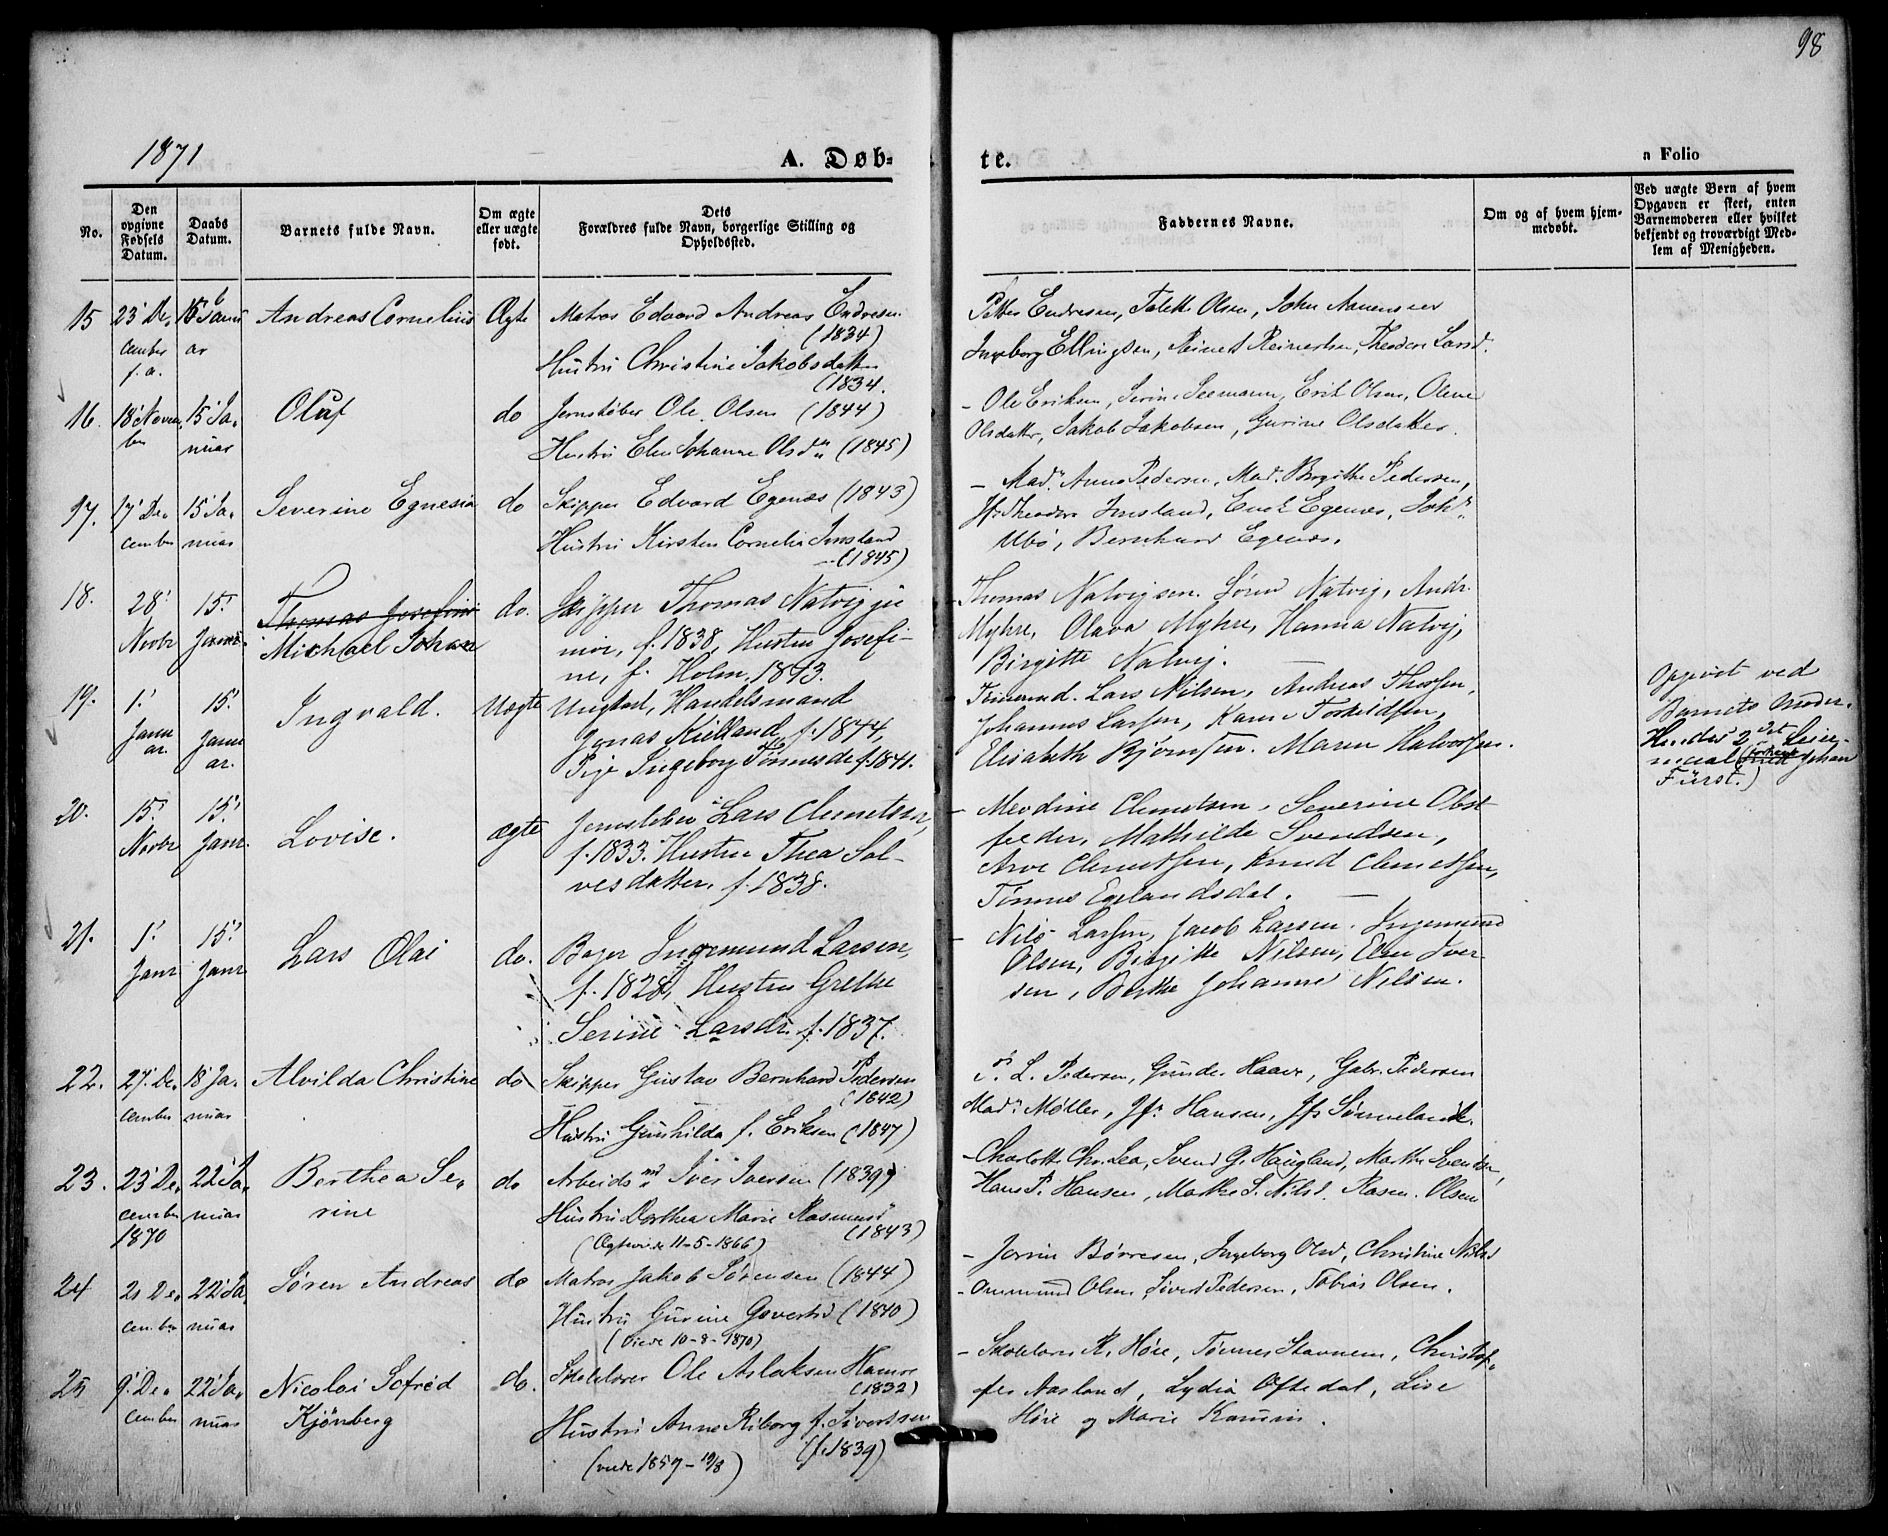 98
1871
A. Døb-
te.
a Folio
No.
Den
opgivne
Fødsels
Datum.
Daabs
Datum.
Barnets fulde Navn.
Om ægte
eller uægte
født.
Dets
Forældres fulde Navn, borgerlige Stilling og
Opholdssted.
Faddernes Navne.
Om og af hvem hjem-
medøbt.
Ved uægte Børn af hvem
Opgaven er skeet, enten
Barnemoderen eller hvilket
bekjendt og troværdigt Med-
lem af Menigheden.
15 23' De- Janu Andreas Cornelius Ægte Matros Edvard Andreas Endresen
cember ar (1834)
f. a. Hustru Christine Jakobsdatter
(1834.
Endresen, Olsen, John
Ingeborg Ellingsen, Reinert Reinertsen, Theodor
16. 18' Novem 15' Ja- Oluf do Jernstøber Ole Olsen (1844)
ber nuar Hustru Elen Johanne Olsd (1845)
- Ole Eriksen, Serine Seemann, Erik Olsen, Olene
Olsdatter, Jakob Jakobsen, Gurine Olsdatter.
17. 17' De- 15' Ja- Severine Egnesia do Skipper Edvard Egenæs (1843)
cember nuar Hustru Kirsten Cornelia Imsland
(1845)
- Mad. Anna Pedersen, Mad. Birgitte Pedersen,
Jfr Theodora Imsland, Egenæs, Joh
Ubø, Bernhard Egenæs.
18. 28' 15' Thomas Josefine do. Skipper Thomas Natvig ju
Novbr Januar Michael Johan nior, f. 1838, Hustru Josefi-
ne, f. Holm. 1843.
Thomas Natvig sen. Søren Natvig, Andr.
Myhre, Olava Myhre, Hanna Natvig,
Birgitte Natvig.
19. 1' 15' Ingvald. Uægte Ungkarl, Handelsmand
Janu Janu Jonas Kielland, f. 1844,
ar. ar. Pige Ingeborg Tønnesdr f. 1841.
Lars Nilsen, Andreas Thorsen,
Johannes Larsen, Karen Torkildsen,
Elisabeth Bjørnsen. Maren Halvorsen.
Opgivet ved
Barnets Moder.
Hendes 2det Leier-
maal Johan
Fürst.)
20. 15' 15' Lovise. ægte Jernstøber Lars Clemetsen,
Novbr Janr. f. 1833. Hustru Thea Sal-
vesdatter, f. 1838.
- Clemetsen, Severine Obst
felder, Mathilde Svendsen,
Arve Clemetsen, Knud Clemetsen,
Tønnes Egelandsdal.
21. 1' 15' Lars Olai do. Bager Ingemund Larsen,
Janr Janr f. 1828, Hustru Grethe
Serine Larsdr. f. 1837.
- Nils Larsen, Jacob Larsen. Ingemund
Olsen, Birgitte Nilsen, Elen Iver-
sen, Berthe Johanne Nilsen.
22. 27' De- 18' Ja- Alvilda Christine do Skipper Gustav Bernhard Pedersen
cember nuar (1842)
Hustru Gunhilda f. Eriksen (1847)
L. Pedersen, Gunder Haave, Gabr. Pedersen
Mad. Møller, Jfr Hansen, Jfr Sømmeland.
23. 23' De- 22' Ja- Berthea Se- do Arbeidsmd Iver Iversen (1839)
cember nuar rine Hustru Dorthea Marie Rasmusd
1870 (1843)
(Ægteviede 11-5-1866)
- Charlotte Chr. Lea, Svend G. Haugland, Marthe Svendsen,
Hans P. Hansen, Marthe S. Nilsd. Rasm. Olsen
24 21 De- 22' Ja- Søren Andreas do Matros Jakob Sørensen (1844)
cember nuar Hustru Gurine Govertsd (1840)
(viede 10-8-1870)
- Børresen, Ingeborg Olsd, Christine Nilsd
Ommund Olsen, Sivert Pedersen, Tobias Olsen.
25 9' De- 22' Ja- Nicolai Sofred do. Skolelærer Ole Aslaksen Hamre
cember nuar Kjønberg (1832)
Hustru Anne Riborg f. Sivertsen
(f. 1839)
(viede 1859-10/8)
- Skolelærer R. Høie, Tønnes Stavnem, Christof-
fer Aasland, Lydia Oftedal, Lise
Høie og Marie